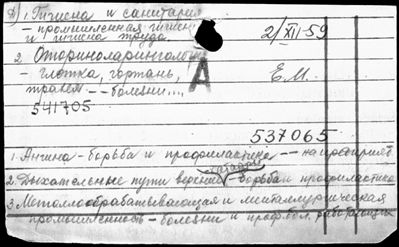 8) 1. Гигиена и санитария
- промышленная гигиена
и гигиена труда
2/XII-59
2. Оториноларингология
- глотка, гортань,
трахея -- болезни...,
А
Е.М.
541705
537065
1. Ангина - борьба и профилактика -- на предприят
катары
2. Дыхательные пути верхние - борьба и профилактика
3. Металлообрабатывающая и металлургическая
промышленность - болезни и проф. бол. работающих